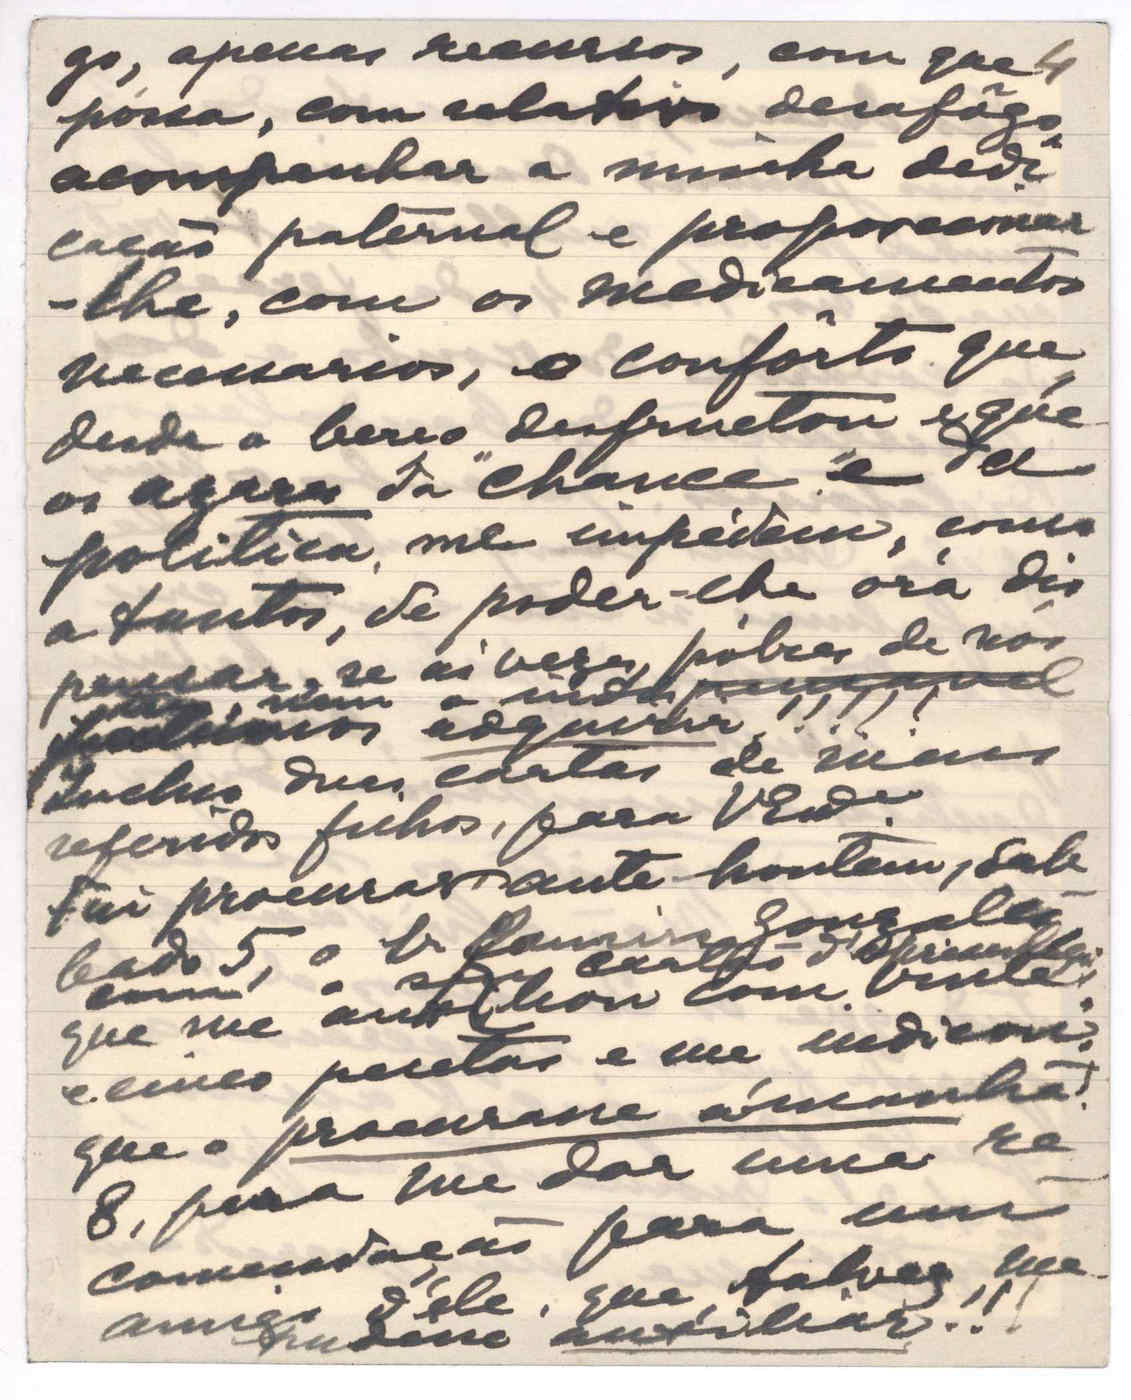 go, apenas recursos, com que 4
póssa, com relativo desafôgo
acompanhar a minha dedi
cação paternal e proporcionar
-lhe, com os medicamentos
necessarios, o confôrto que
desde o berço desfructou e que
os azares da "chance" e da
politica, me impédem, como
a tantos, de poder-lhe óra dis
pensar, se ás vezes, póbres de nós
nem o indispensavel
adquirir!!!!!!
Incluo duas cartas de meus
referidos filhos, para VExª.
Fui procurar ante-hontem, sab
bado 5, o Sr Ramiro Gonzalez
com o seu cartão d'
que me auxiliou com vinte
e cinco pesetas e me indicou
que o procurasse ámanhã
8, para me dar uma re
comendação para um
amigo d'éle, que, talvez, me
pudésse auxiliar!!!